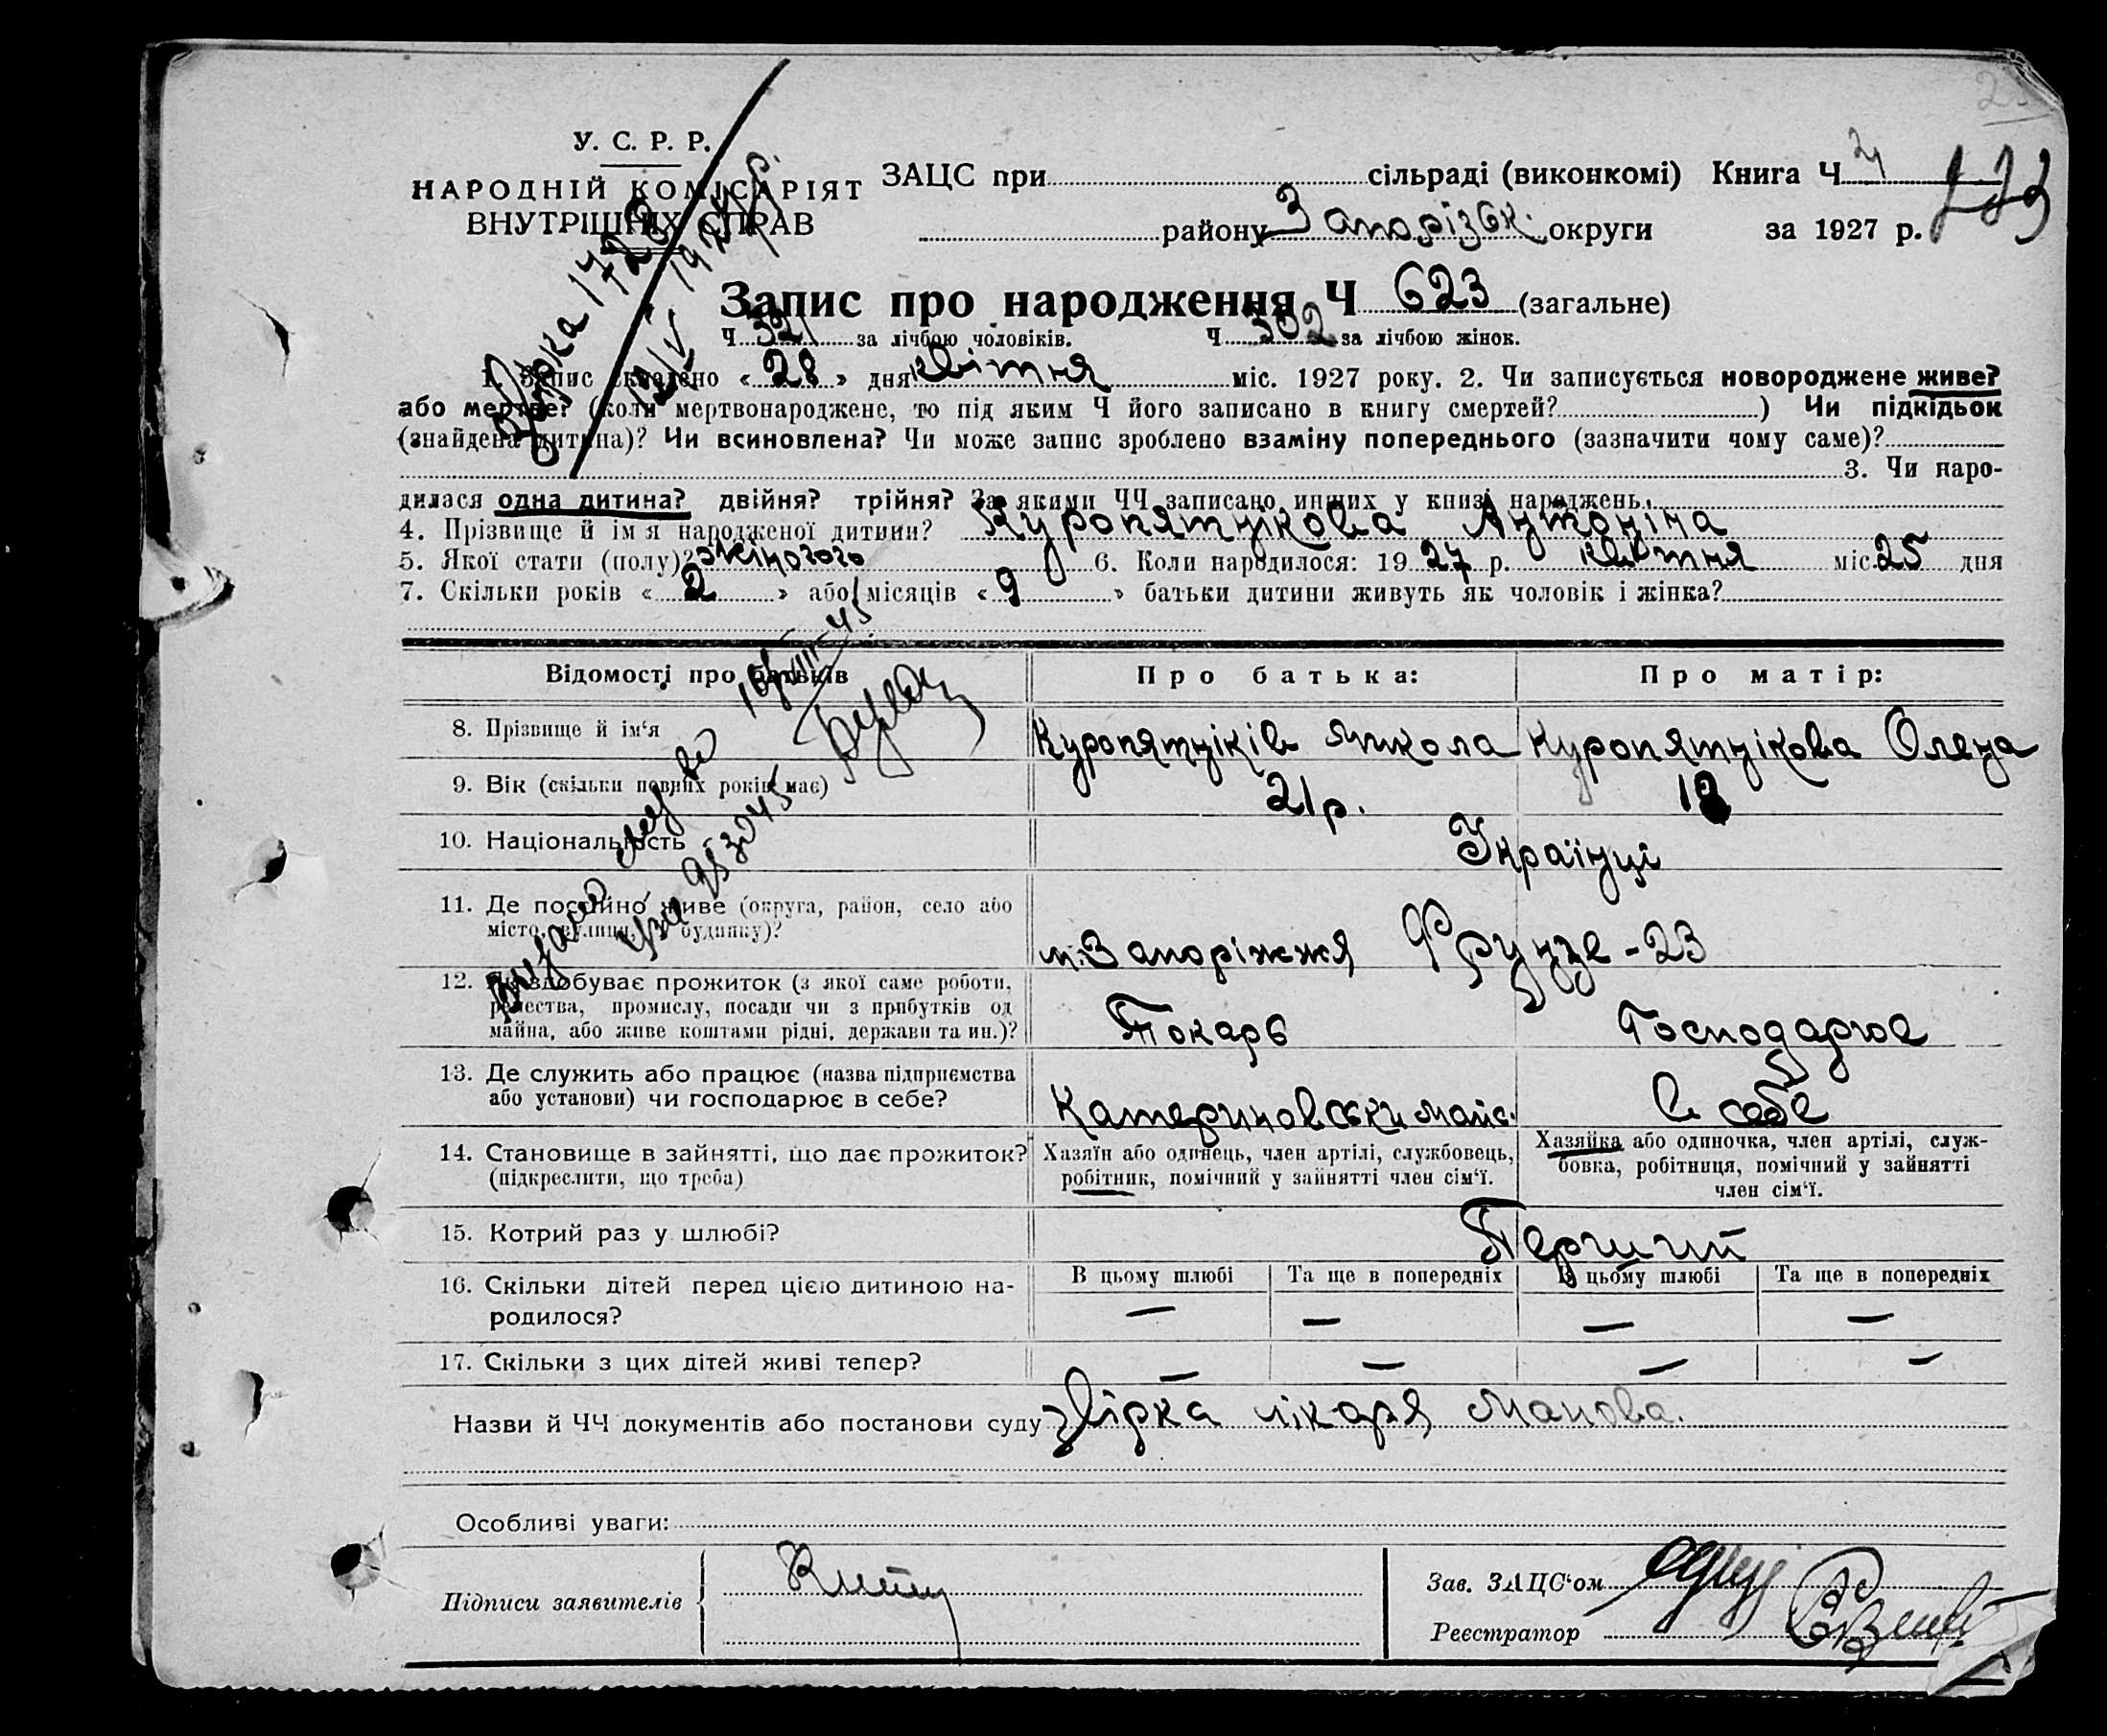 У. С. Р. Р.
НАРОДНІЙ КОМІСАРІЯТ
ВНУТРІШНІХ СПРАВ
ЗАЦС при сільраді (виконкомі) Книга Ч
району Запорізьк. округи за 1927 р.
Запис про народження Ч 623 (загальне)
Ч 321 за лічбою чоловіків. Ч 302 за лічбою жінок.
1. Запис складено « 28 » дня квітня міс. 1927 року. 2. Чи записується новороджене живе?
або мертве? (коли мертвонароджене, то під яким Ч його записано в книгу смертей? ) Чи підкідьок
(знайдена дитина)? Чи всиновлена? Чи може запис зроблено взаміну попереднього (зазначити чому саме)?
3. Чи наро-
дилася одна дитина? двійня? трійня? За якими ЧЧ записано инших у книзі народжень.
4. Прізвище й ім'я народженої дитини? Куропятнікова Антоніна
5. Якої стати (полу)? жіночого 6. Коли народилося: 1927 р. квітня міс. 25 дня
7. Скільки років « 2 » або місяців « 9 » батьки дитини живуть як чоловік і жінка?
Відомості про батьків Про батька: Про матір:
8. Прізвище й ім'я Куропятніків Микола Куропятнікова Олена
9. Вік (скільки повних років має) 21 р.
10. Національність Українці
11. Де постійно живе (округа, район, село або
місто, вулиця, будинку)? м. Запоріжжя Фрунзе - 23
12. Чим здобуває прожиток (з якої саме роботи,
ремества, промислу, посади чи з прибутків од
майна, або живе коштами рідні, держави та ин.)? Токарь Господарює
13. Де служить або працює (назва підприємства
або установи) чи господарює в себе? Катериновськи майс. в себе
14. Становище в зайнятті, що дає прожиток?
(підкреслити, що треба)
Хазяїн або одинець, член артілі, службовець,
робітник, помічний у зайнятті член сім'ї.
Хазяйка або одиночка, член артілі, служ-
бовка, робітниця, помічний у зайнятті
член сім'ї.
15. Котрий раз у шлюбі? Перший
16. Скільки дітей перед цією дитиною на-
родилося?
В цьому шлюбі Та ще в попередніх В цьому шлюбі Та ще в попередніх
— — — —
17. Скільки з цих дітей живі тепер? — — — —
Назви й ЧЧ документів або постанови суду звірка лікаря Манова.
Особливі уваги:
Підписи заявителів
Зав. ЗАЦС'ом
Реєстратор